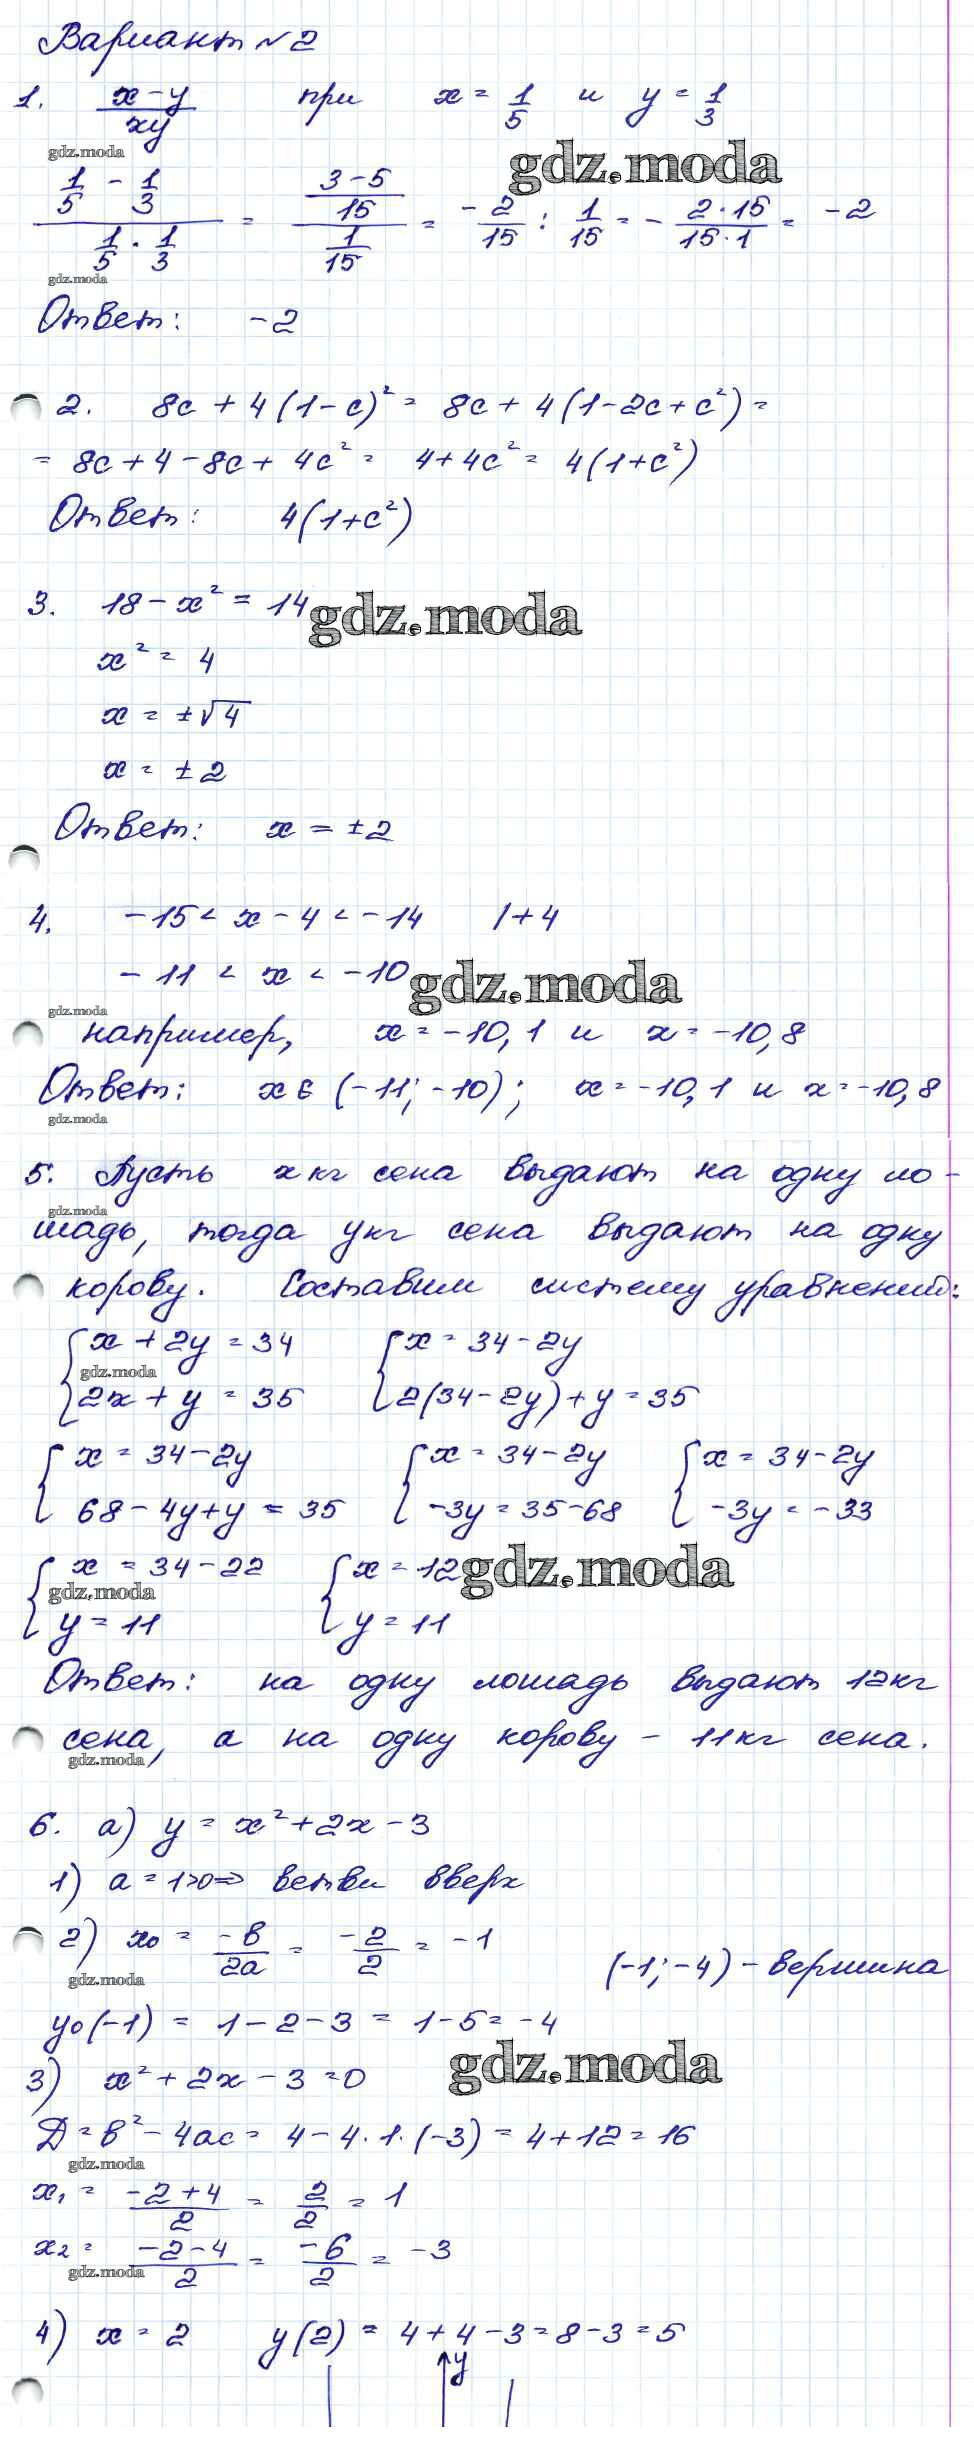 Вариант №2
1. x-y/xy при x = 1/5 и y = 1/3
gdz.moda
gdz.moda
(1/5 - 1/3)/(1/5 · 1/3) = ((3-5)/15)/(1/15) = -2/15 : 1/15 = - 2·15/15·1 = -2
gdz.moda
Ответ: -2
2. 8c + 4(1-c)² = 8c + 4(1-2c+c²) =
= 8c + 4 - 8c + 4c² = 4+4c² = 4(1+c²)
Ответ: 4(1+c²)
3. 18 - x² = 14
gdz.moda
x² = 4
x = ±√4
x = ±2
Ответ: x = ±2
4. -15 < x - 4 < -14 | +4
-11 < x < -10
gdz.moda
gdz.moda
например, x = -10,1 и x = -10,8
Ответ: x ∈ (-11; -10); x = -10,1 и x = -10,8
gdz.moda
5. Пусть x кг сена выдают на одну ло-
gdz.moda
шадь, тогда y кг сена выдают на одну
корову. Составим систему уравнений:
{x + 2y = 34 {x = 34 - 2y
gdz.moda
2x + y = 35 2(34 - 2y) + y = 35
{x = 34 - 2y {x = 34 - 2y {x = 34 - 2y
68 - 4y + y = 35 -3y = 35 - 68 -3y = -33
{x = 34 - 22 {x = 12
gdz.moda
gdz.moda
y = 11 y = 11
Ответ: на одну лошадь выдают 12 кг
сена, а на одну корову - 11 кг сена.
gdz.moda
6. а) y = x² + 2x - 3
1) a = 1>0 => ветви вверх
2) x₀ = -b/2a = -2/2 = -1 (-1; -4) - вершина
gdz.moda
y₀(-1) = 1 - 2 - 3 = 1 - 5 = -4
gdz.moda
3) x² + 2x - 3 = 0
Д = b² - 4ac = 4 - 4·1·(-3) = 4 + 12 = 16
gdz.moda
x₁ = -2+4/2 = 2/2 = 1
x₂ = -2-4/2 = -6/2 = -3
gdz.moda
4) x = 2 y(2) = 4 + 4 - 3 = 8 - 3 = 5
y